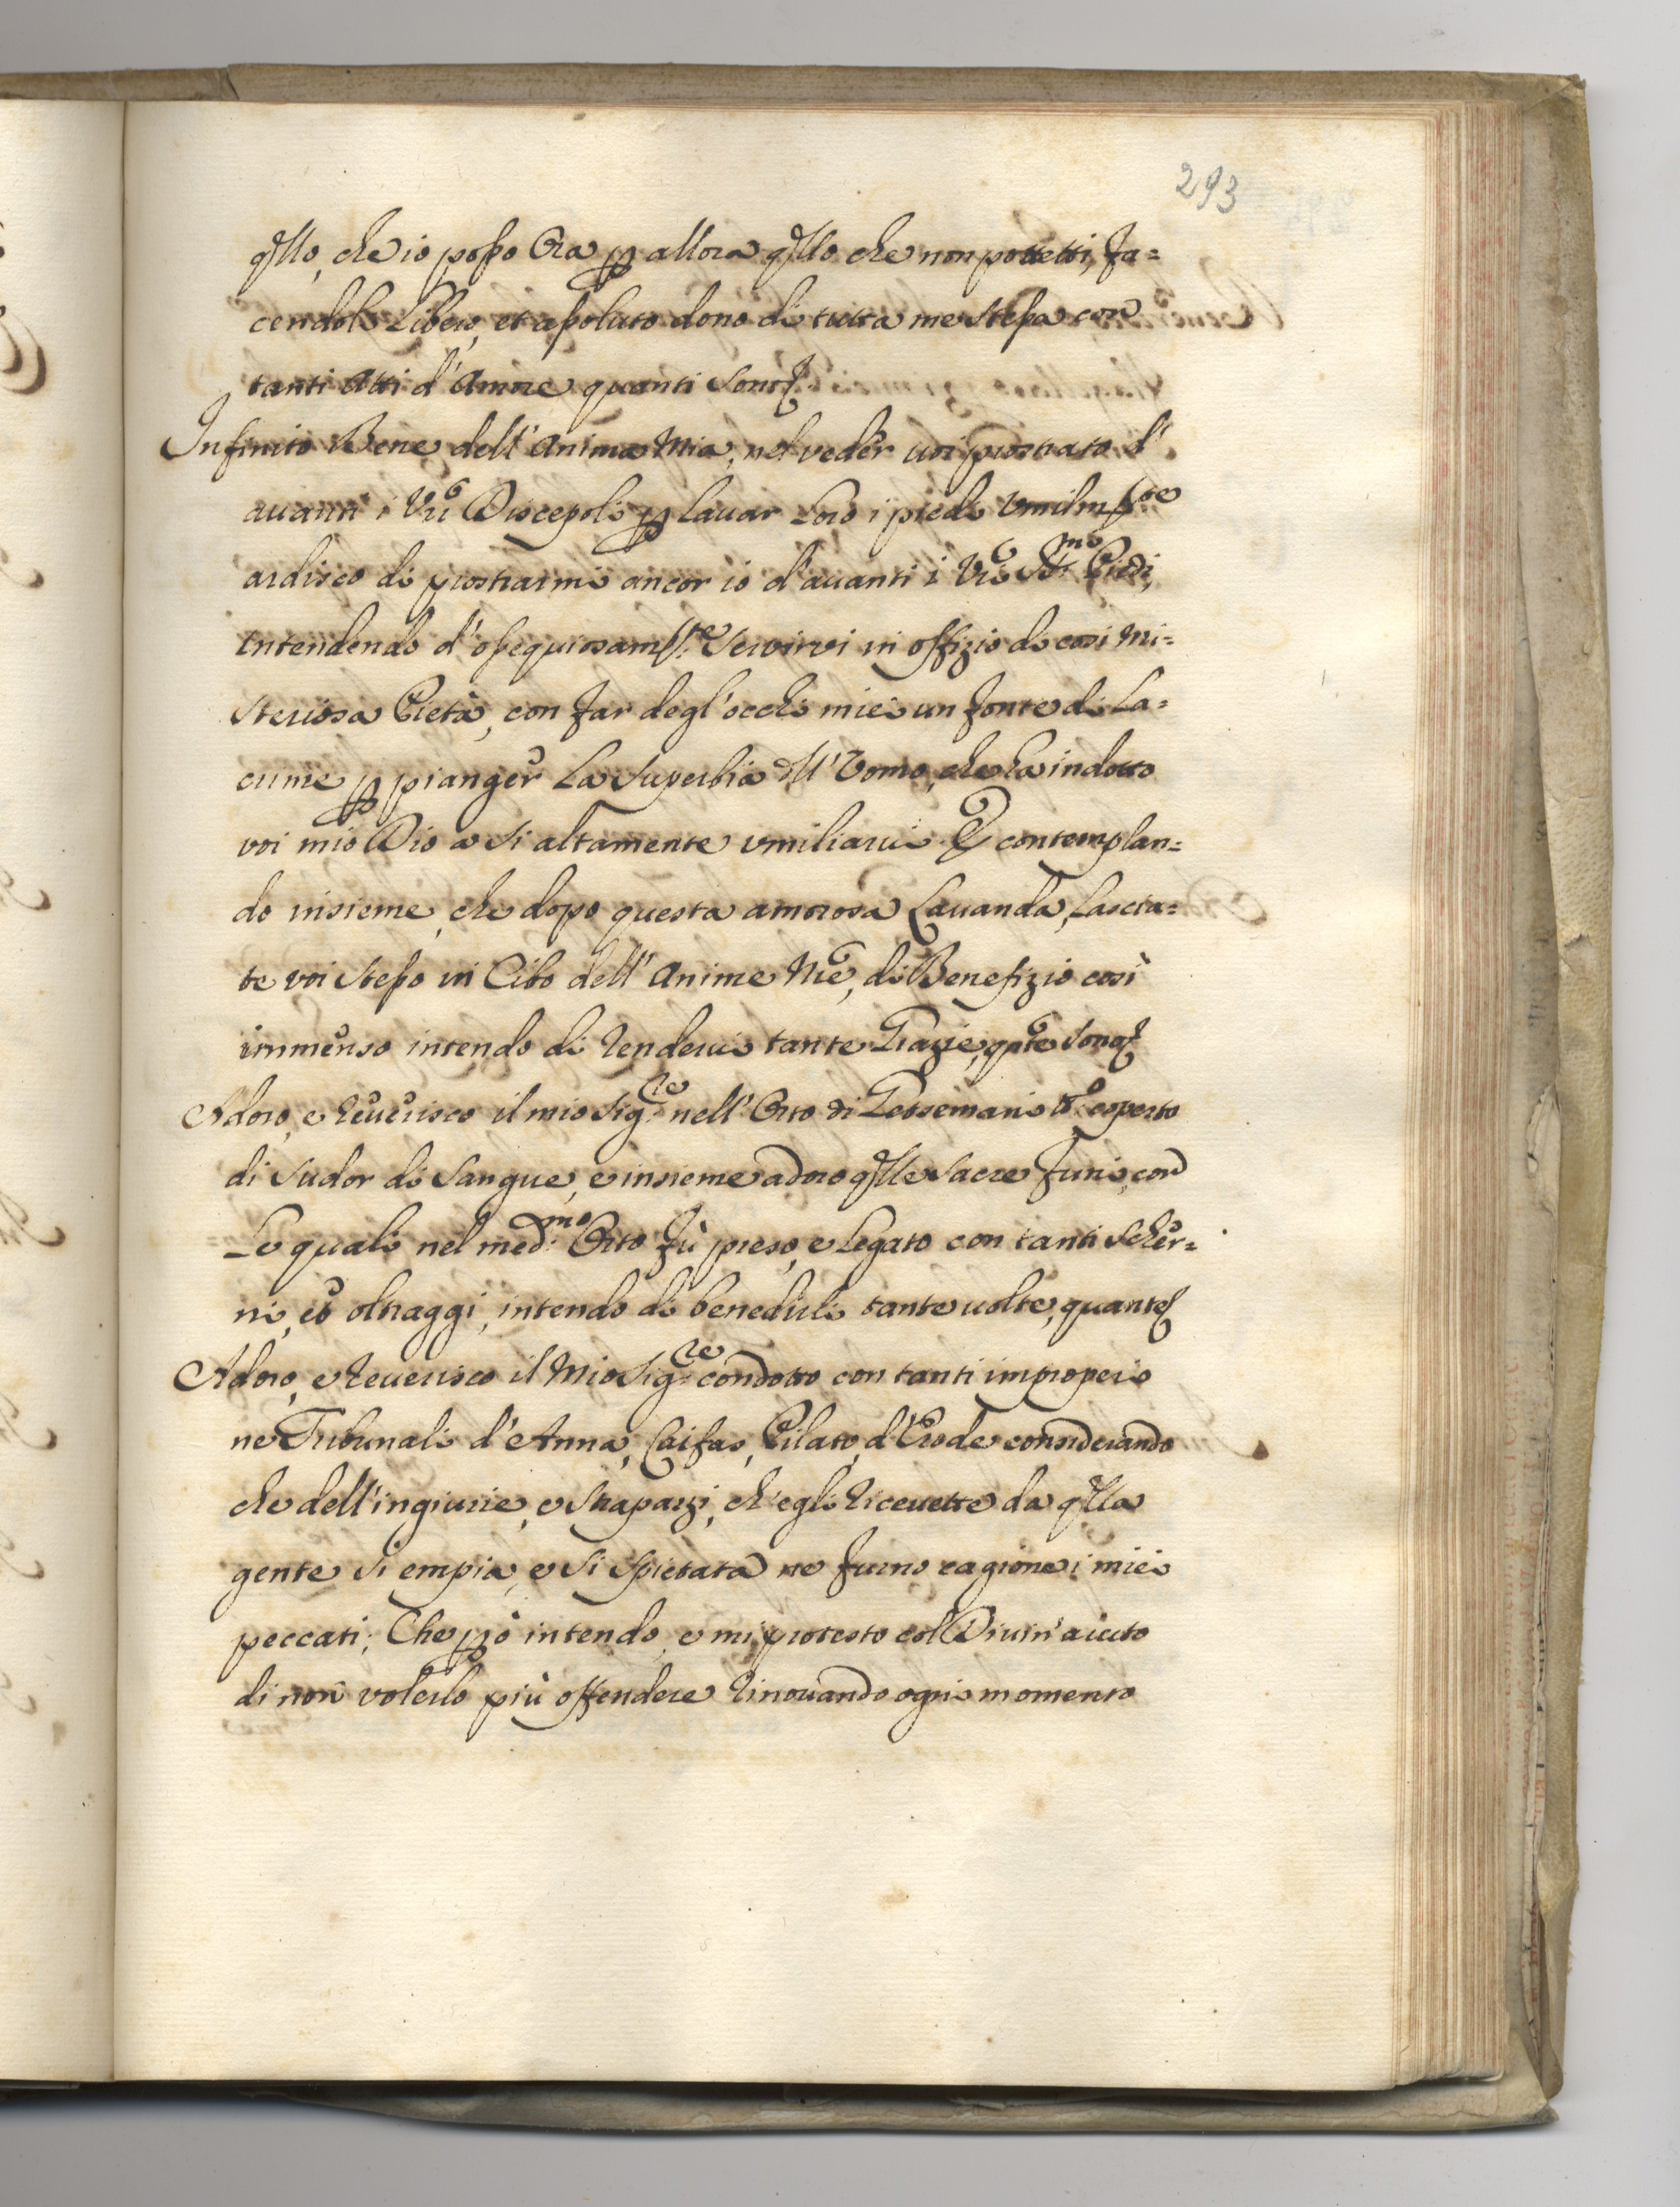 293
qllo, che io posso Ora p allora qllo che non pottetti, fa=
cendoli Libero, et assoluto dono di tutta me stessa con
tanti Atti d'Amore quanti sono
Infinito Bene dell'Anima Mia, nel veder voi prostrato d'
avanti i Vri Discepoli p lavar Loro i piedi Umilmte
ardisco di prostrarmi ancor io d'avanti i Vri Smi Piedi,
Intendendo d'ossequiosamte Servirvi in offizio di così Mi=
steriosa Pietà, con far degl'occhi miei un fonte di La=
crime p pianger La Superbia dll'Uomo, che ha indotto
voi mio Dio a si altamente umiliarvi. E contemplan=
do insieme, che dopo questa amorosa Lavanda, Lascia=
te voi stesso in Cibo dell'Anime Nre, di Benefizio così
immenso intendo di rendervi tante Grazie, qnte sono
Adoro, e reverisco il mio Sigre nell'Orto di Getsemani tto coperto
di Sudor di Sangue, e insieme adoro qlle Sacre funi, con
Le quali nel medmo Orto fù preso, e Legato con tanti Scher=
ni, et oltraggi, intendo di benedirli tante volte, quante
Adoro, e reverisco il Mio Sigre condotto con tanti improperi
ne Tribunali d'Anna, Caifas, Pilato, d'Erode considerando
che dell'ingiurie, e Strapazzi, ch'egli ricevette da qlla
gente si empia, e si Spietata ne furno cagione i miei
peccati; Che pciò intendo, e mi protesto col Divin'aiuto
di non volerlo più offendere rinovando ogni momento